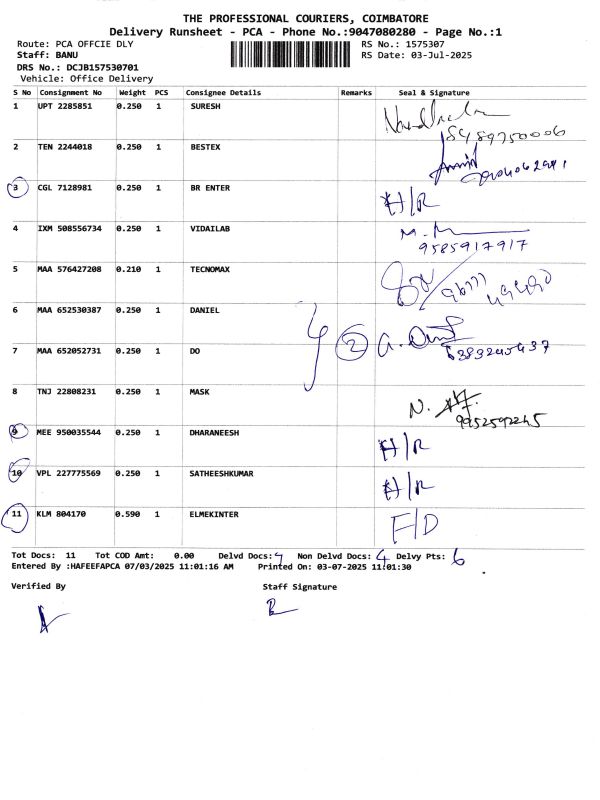 THE PROFESSIONAL COURIERS, COIMBATORE
Delivery Runsheet - PCA - Phone No.:9047080280 - Page No.:1
Route: PCA OFFCIE DLY RS No.: 1575307
Staff: BANU RS Date: 03-Jul-2025
DRS No.: DCJB157530701
Vehicle: Office Delivery
S No Consignment No Weight PCS Consignee Details Remarks Seal & Signature
1 UPT 2285851 0.250 1 SURESH
2 TEN 2244018 0.250 1 BESTEX
3 CGL 7128981 0.250 1 BR ENTER H/R
4 IXM 508556734 0.250 1 VIDAILAB
9585917917
5 MAA 576427208 0.210 1 TECNOMAX
6 MAA 652530387 0.250 1 DANIEL
7 MAA 652052731 0.250 1 DO 2
8 TNJ 22808231 0.250 1 MASK N.
9 MEE 950035544 0.250 1 DHARANEESH H/R
10 VPL 227775569 0.250 1 SATHEESHKUMAR H/R
11 KLM 804170 0.590 1 ELMEKINTER F/D
Tot Docs: 11 Tot COD Amt: 0.00 Delvd Docs: 7 Non Delvd Docs: 4 Delvy Pts: 6
Entered By :HAFEEFAPCA 07/03/2025 11:01:16 AM Printed On: 03-07-2025 11:01:30
Verified By Staff Signature